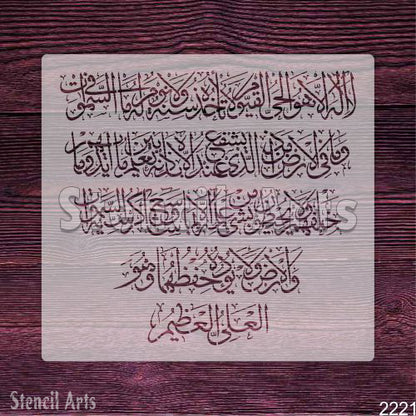 لا اله الا هو الحي القيوم لا تاخذه سنة ولا نوم له ما في السموات
وما في الارض من ذا الذي يشفع عنده الا باذنه يعلم ما بين ايديهم وما
خلفهم ولا يحيطون بشيء من علمه الا بما شاء وسع كرسيه السموات
والارض ولا يؤوده حفظهما وهو
العلي العظيم
Stencil Arts
Stencil Arts
2221